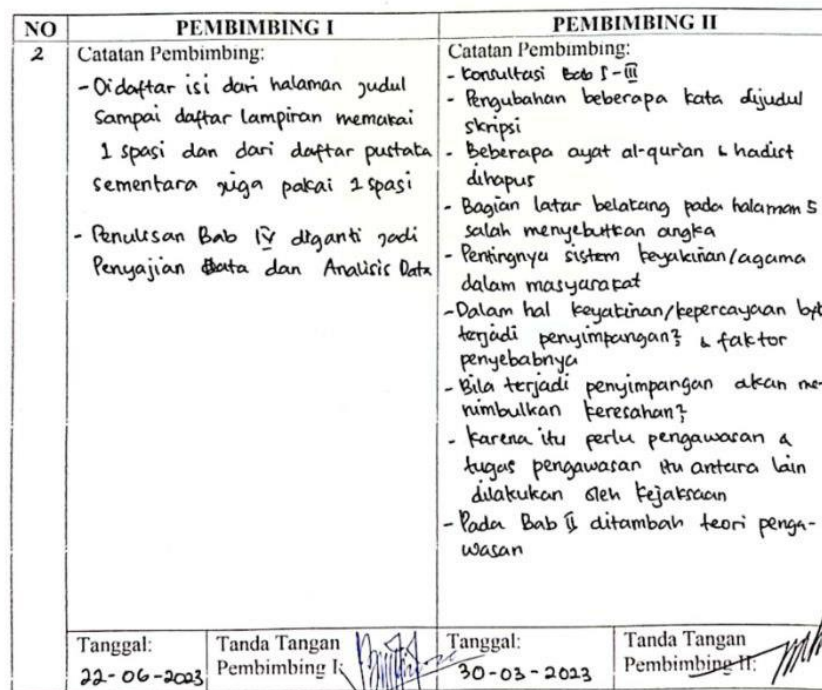 NO
PEMBIMBING I
PEMBIMBING II
2
Catatan Pembimbing:
- Didaftar isi dari halaman judul
sampai daftar lampiran memakai
1 spasi dan dari daftar pustaka
sementara juga pakai 1 spasi
- Penulisan Bab IV diganti jadi
Penyajian Data dan Analisis Data
Catatan Pembimbing:
- Konsultasi Bab I-III
- Pengubahan beberapa kata dijudul
skripsi
- Beberapa ayat al-qur'an & hadist
dihapus
- Bagian latar belakang pada halaman 5
salah menyebutkan angka
- Pentingnya sistem keyakinan/agama
dalam masyarakat
- Dalam hal keyakinan/kepercayaan
terjadi penyimpangan? & faktor
penyebabnya
- Bila terjadi penyimpangan akan me-
nimbulkan keresahan?
- Karena itu perlu pengawasan &
tugas pengawasan itu antara lain
dilakukan oleh Kejaksaan
- Pada Bab II ditambah teori penga-
wasan
Tanggal:
22-06-2023
Tanda Tangan
Pembimbing I:
Tanggal:
30-03-2023
Tanda Tangan
Pembimbing II: